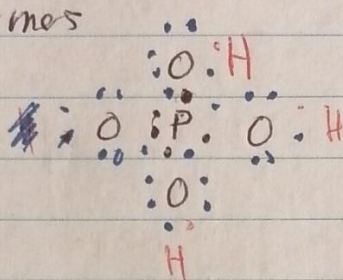 mes
O H
O P O H
O
H